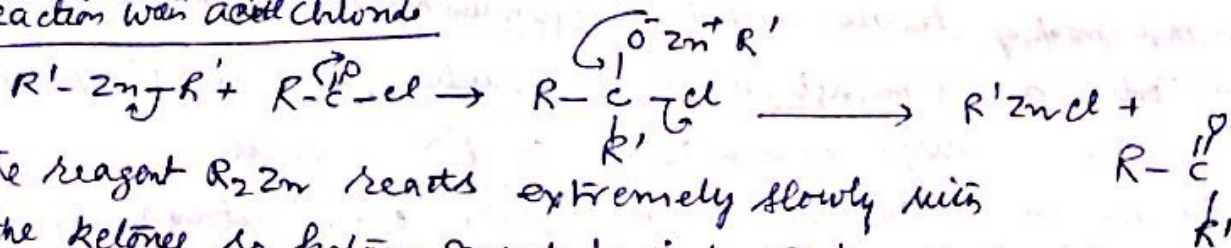 eaction with acid chloride
R'-Zn-R' + R-C(=O)-Cl → R-C(O⁻ Zn⁺ R')(R')-Cl → R'ZnCl + R-C(=O)-R'
e reagent R₂Zn reacts extremely slowly with
the ketones so